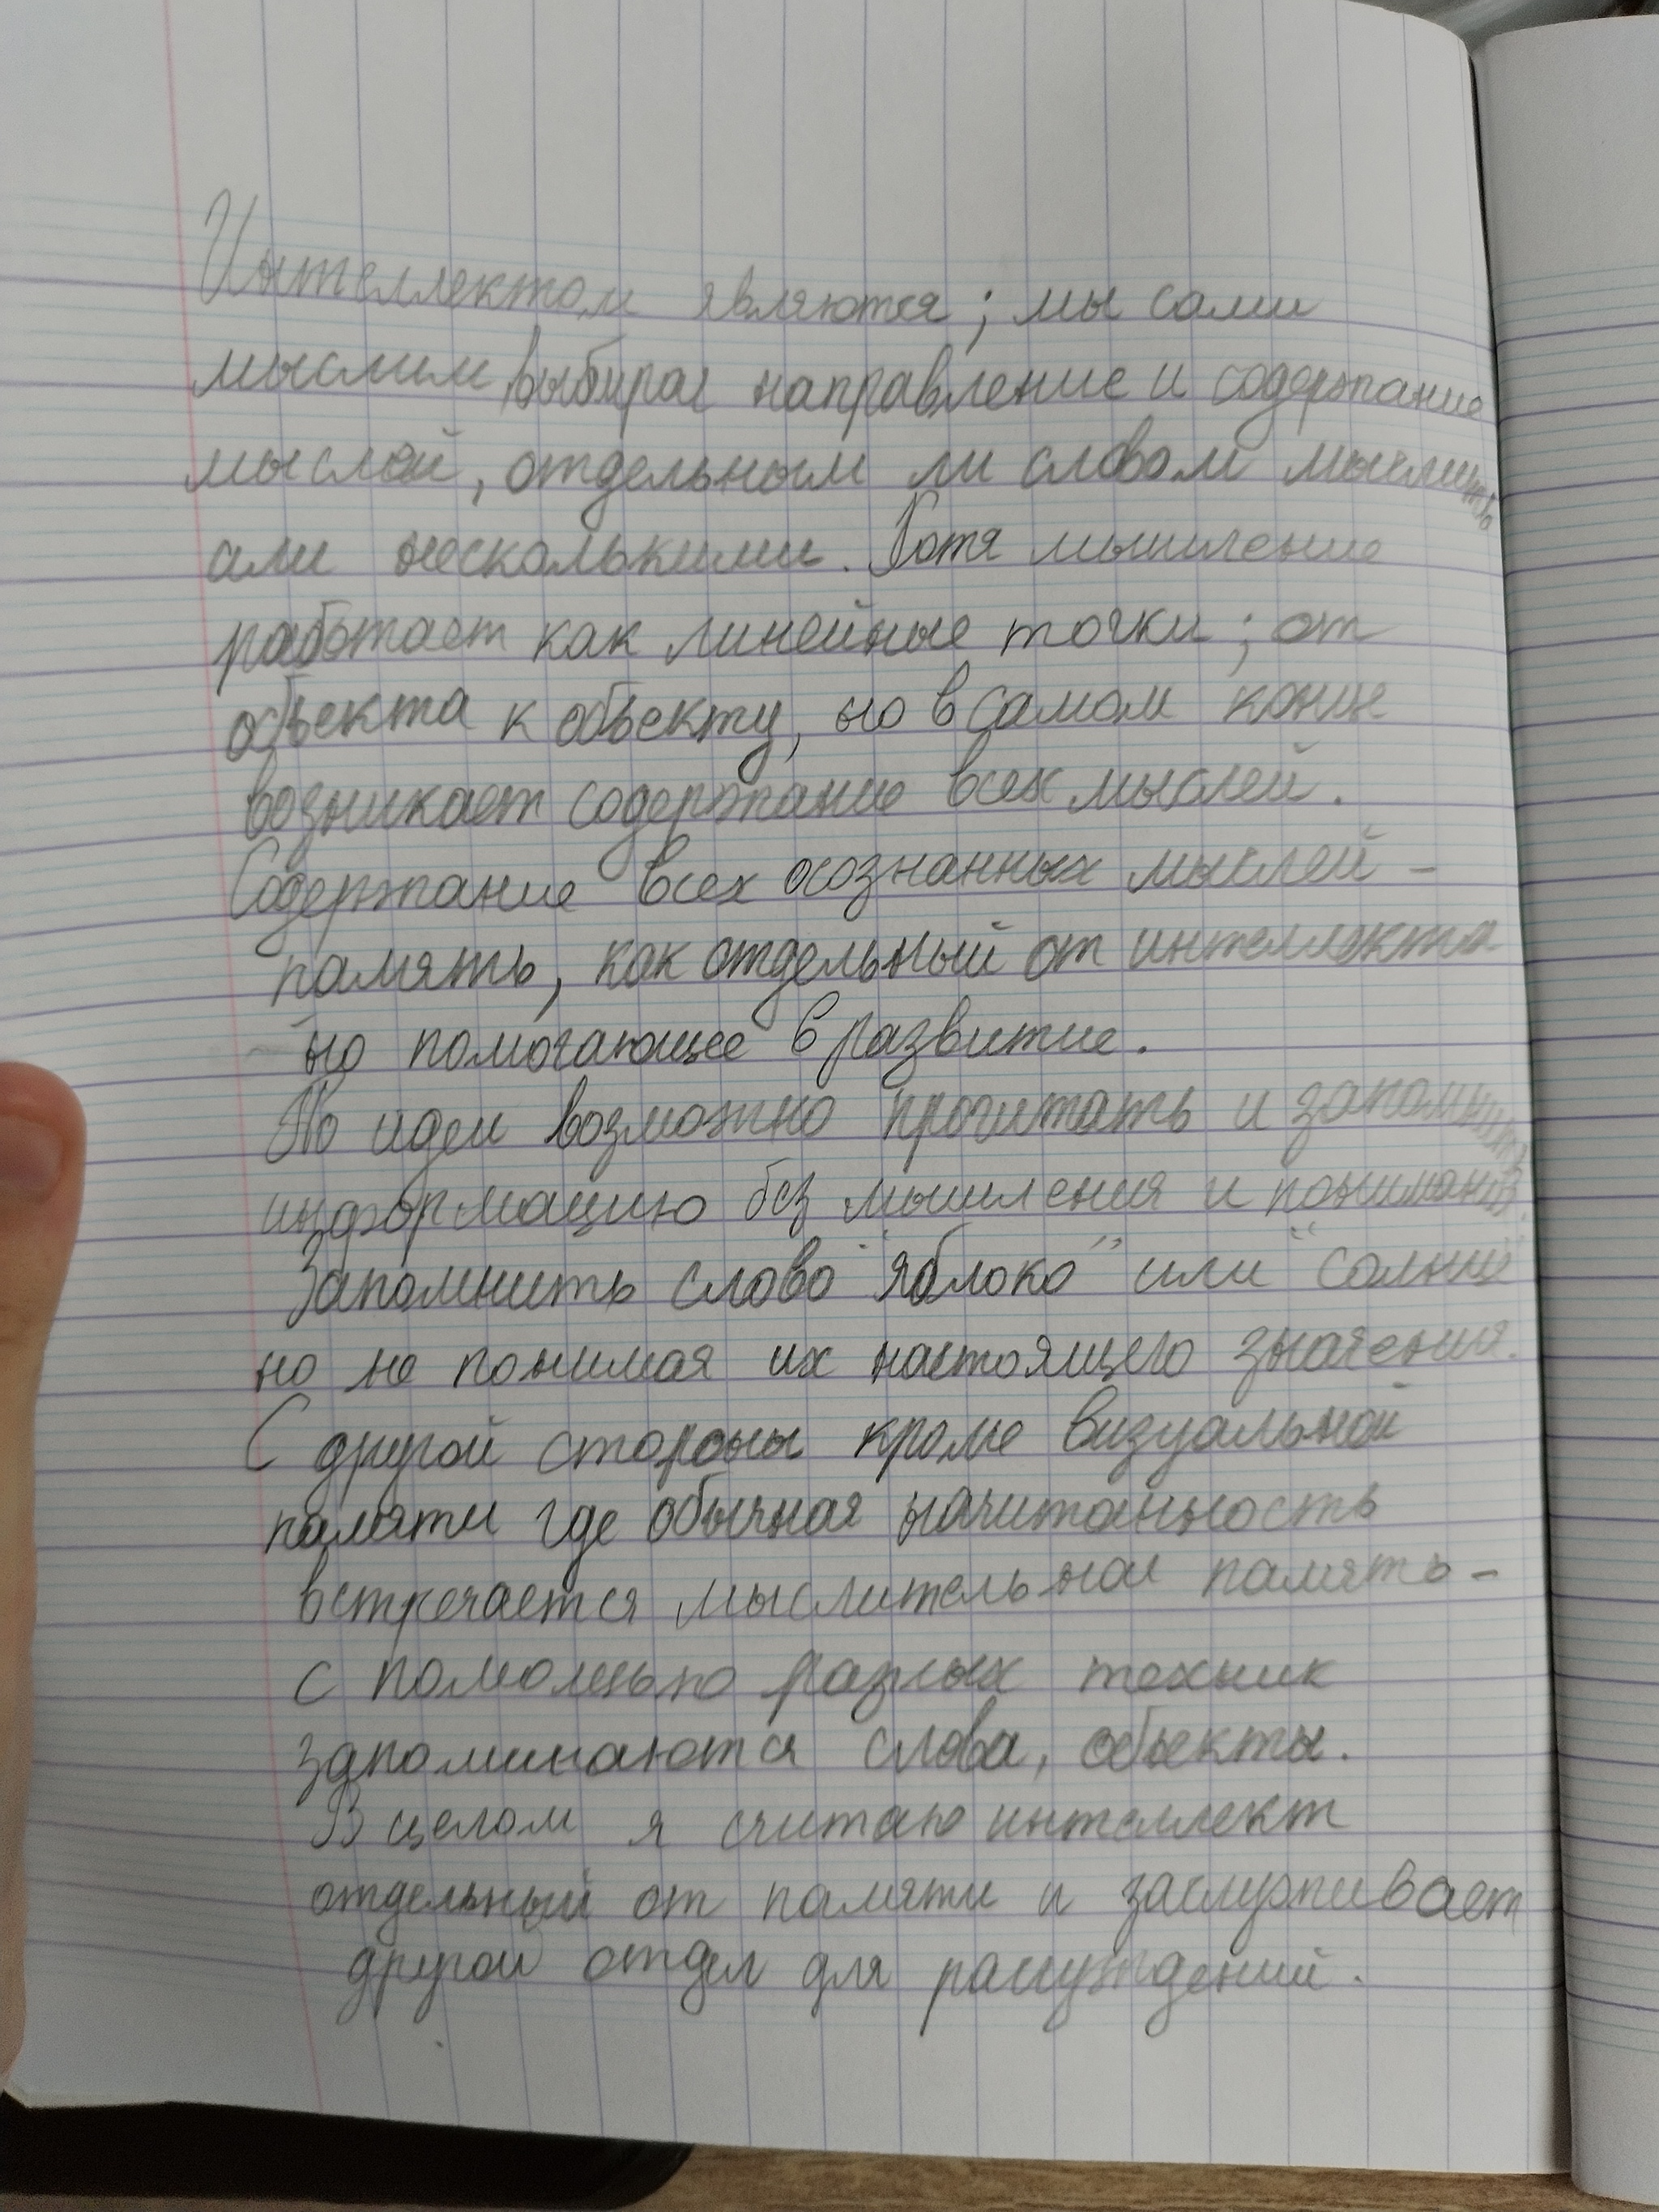 Интеллектом являются; мы сами
мыслим выбирая направление и содержание
мыслей, отдельным ли словом мыслить
али несколькими. Хотя мышление
работает как линейные точки; от
объекта к объекту, но в самом конце
возникает содержание всех мыслей.
Содержание всех осознанных мыслей -
память, как отдельный от интеллекта
но помогающее в развитие.
По идеи возможно прочитать и запомнить
информацию без мышления и понимания.
Запомнить слово "яблоко" или "солнце
но не понимая их настоящего значения.
С другой стороны кроме визуальной
памяти где обычная начитанность
встречается мыслительная память -
с помощью разных техник
запоминаются слова, объекты.
В целом я считаю интеллект
отдельный от памяти и заслуживает
другой отдел для рассуждений.